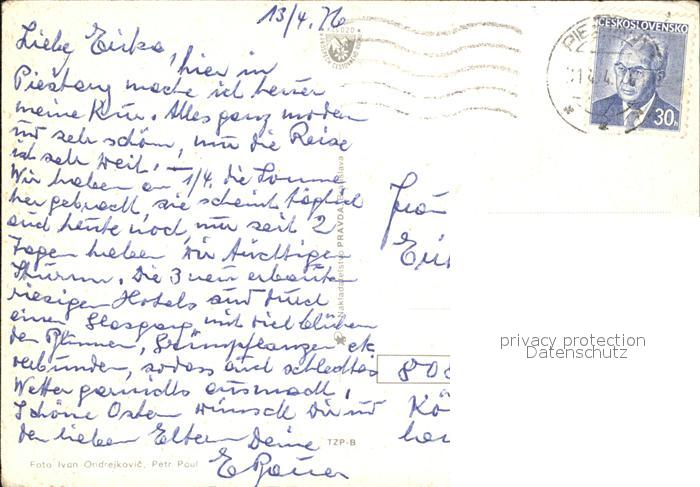 13/4. 76
Liebe Erika,
hier in
Piešťany mache ich heuer
meine Kur. Alles ganz modern
und sehr schön, nur die Reise
ist sehr weit. —
Wir haben am 1/4. die Sonne
hergebracht, sie scheint täglich
und heute noch, nur seit 2
Tagen haben wir tüchtigen
Sturm. Die 3 neu erbauten
riesigen Hotels sind durch
einen Glasgang mit viel blühen
den Blumen, Grünpflanzen etc
verbunden, sodass auch schlechtes
Wetter garnichts ausmacht.
Schöne Ostern wünscht Dir und
den lieben Eltern Deine
E Bauer
TZP-B
Foto Ivan Ondrejkovič, Petr Paul
Nakladateľstvo PRAVDA
ČESKOSLOVENSKO
30h
Frau
808
Kö
privacy protection
Datenschutz